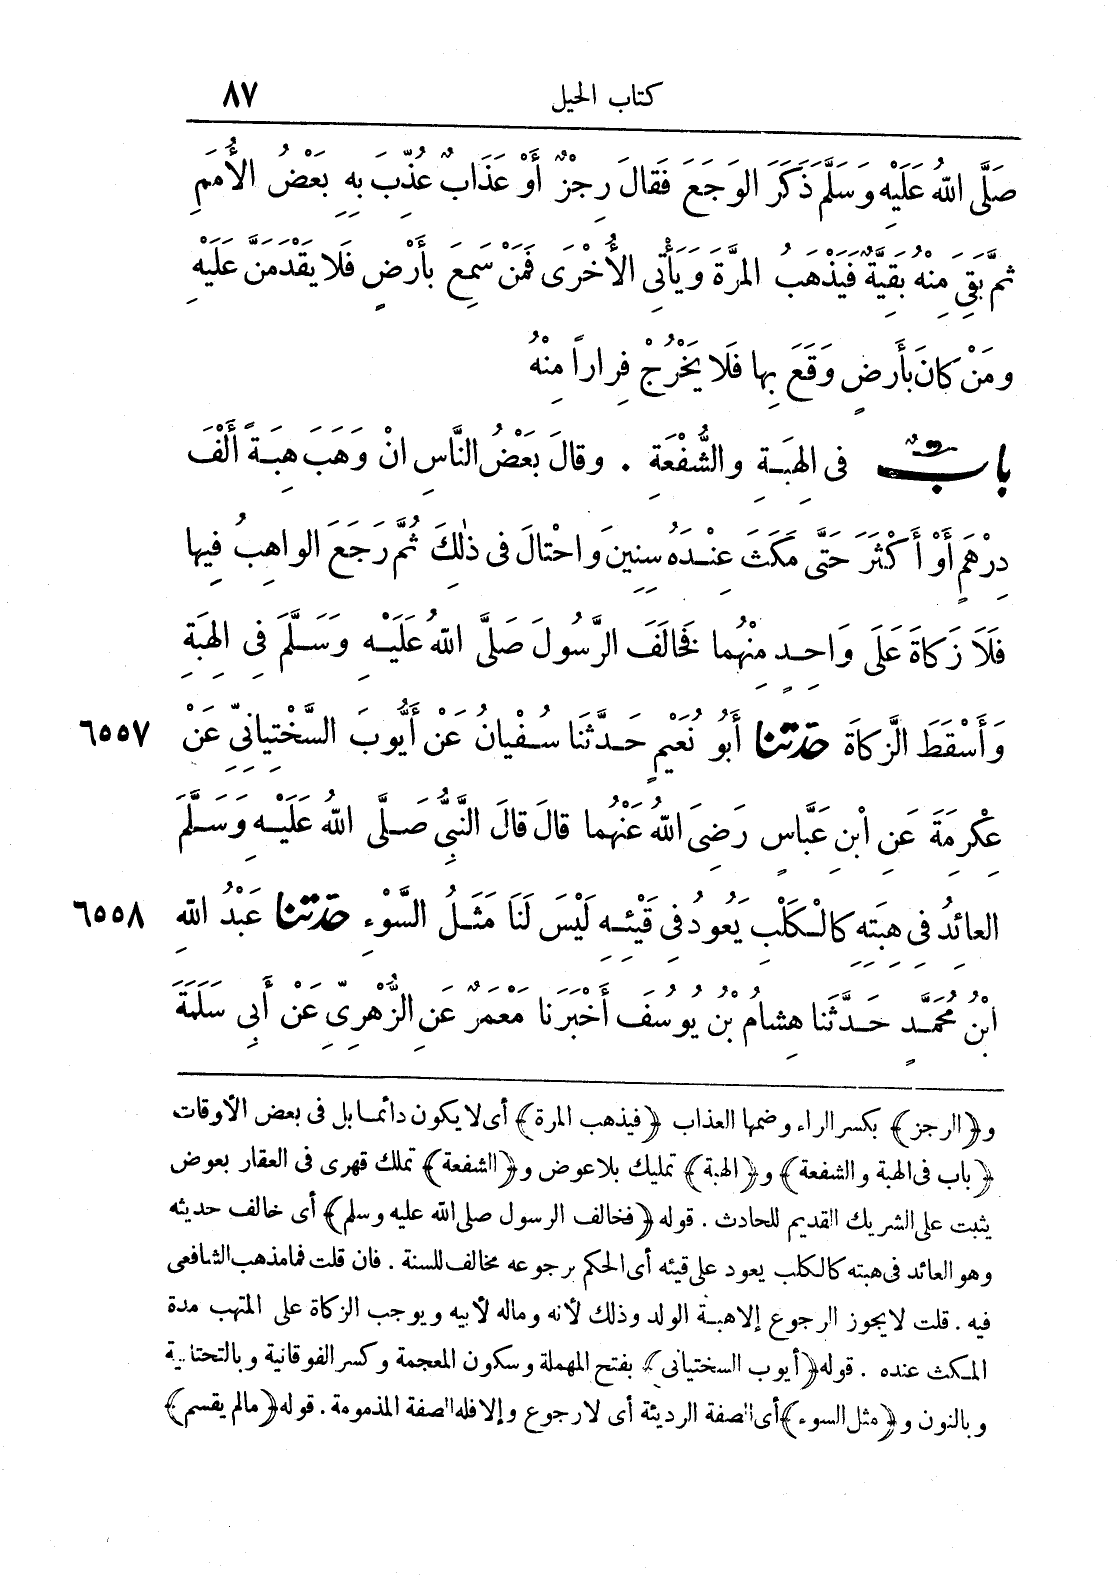 كتاب الحيل ٨٧
صَلَّى اللهُ عَلَيْهِ وَسَلَّمَ ذَكَرَ الوَجَعَ فَقَالَ رِجْزٌ أَوْ عَذَابٌ عُذِّبَ بِهِ بَعْضُ الأُمَمِ
ثمَّ بَقِىَ مِنْهُ بَقِيَّةٌ فَيَذْهَبُ المَرَّةَ وَيَأْتِى الأُخْرَى فَمَنْ سَمِعَ بأَرْضٍ فَلَا يَقْدَمَنَّ عَلَيْهِ
ومَنْ كانَ بأَرضٍ وَقَعَ بِها فَلَا يَخْرُجْ فِراراً مِنْهُ
بابٌ فى الهِبَةِ والشُّفْعَةِ . وقالَ بَعْضُ النَّاسِ انْ وَهَبَ هِبَةً أَلْفَ
دِرْهَمٍ أَوْ أَكْثَرَ حَتَّى مَكَثَ عِنْدَهُ سِنِينَ وَاحْتالَ فى ذٰلِكَ ثُمَّ رَجَعَ الواهِبُ فِيها
فَلَا زَكاةَ عَلَى وَاحِدٍ مِنْهُما فَخالَفَ الرَّسُولَ صَلَّى اللهُ عَلَيْهِ وَسَلَّمَ فِى الهِبَةِ
وَأَسْقَطَ الزَّكاةَ حَدَّثَنا أَبُو نُعَيْمٍ حَدَّثَنَا سُفْيانُ عَنْ أَيُّوبَ السَّخْتِيانِىِّ عَنْ ٦٥٥٧
عِكْرِمَةَ عَنِ ابْنِ عَبَّاسٍ رَضِىَ اللهُ عَنْهُما قالَ قالَ النَّبِىُّ صَلَّى اللهُ عَلَيْهِ وَسَلَّمَ
العائِدُ فِى هِبَتِهِ كالْكَلْبِ يَعُودُ فِى قَيْئِهِ لَيْسَ لَنَا مَثَلُ السَّوْءِ حَدَّثَنا عَبْدُ اللهِ ٦٥٥٨
ابْنُ مُحَمَّدٍ حَدَّثَنا هِشامُ بْنُ يُوسُفَ أَخْبَرَنا مَعْمَرٌ عَنِ الزُّهْرِىِّ عَنْ أَبِى سَلَمَةَ
و﴿الرجز﴾ بكسر الراء وضمها العذاب ﴿فيذهب المرة﴾ أى لا يكون دائما بل فى بعض الأوقات
﴿باب فى الهبة والشفعة﴾ و﴿الهبة﴾ تمليك بلا عوض و﴿الشفعة﴾ تملك قهرى فى العقار بعوض
يثبت على الشريك القديم للحادث . قوله ﴿فخالف الرسول صلى الله عليه وسلم﴾ أى خالف حديثه
وهو العائد فى هبته كالكلب يعود على قيئه أى الحكم برجوعه مخالف للسنة . فان قلت فما مذهب الشافعى
فيه . قلت لا يجوز الرجوع إلا هبة الولد وذلك لأنه وماله لأبيه ويوجب الزكاة على المتهب مدة
المكث عنده . قوله ﴿أيوب السختيانى﴾ بفتح المهملة وسكون المعجمة وكسر الفوقانية وبالتحتانية
وبالنون و﴿مثل السوء﴾ أى الصفة الرديئة أى لا رجوع وإلا فله الصفة المذمومة . قوله ﴿مالم يقسم﴾